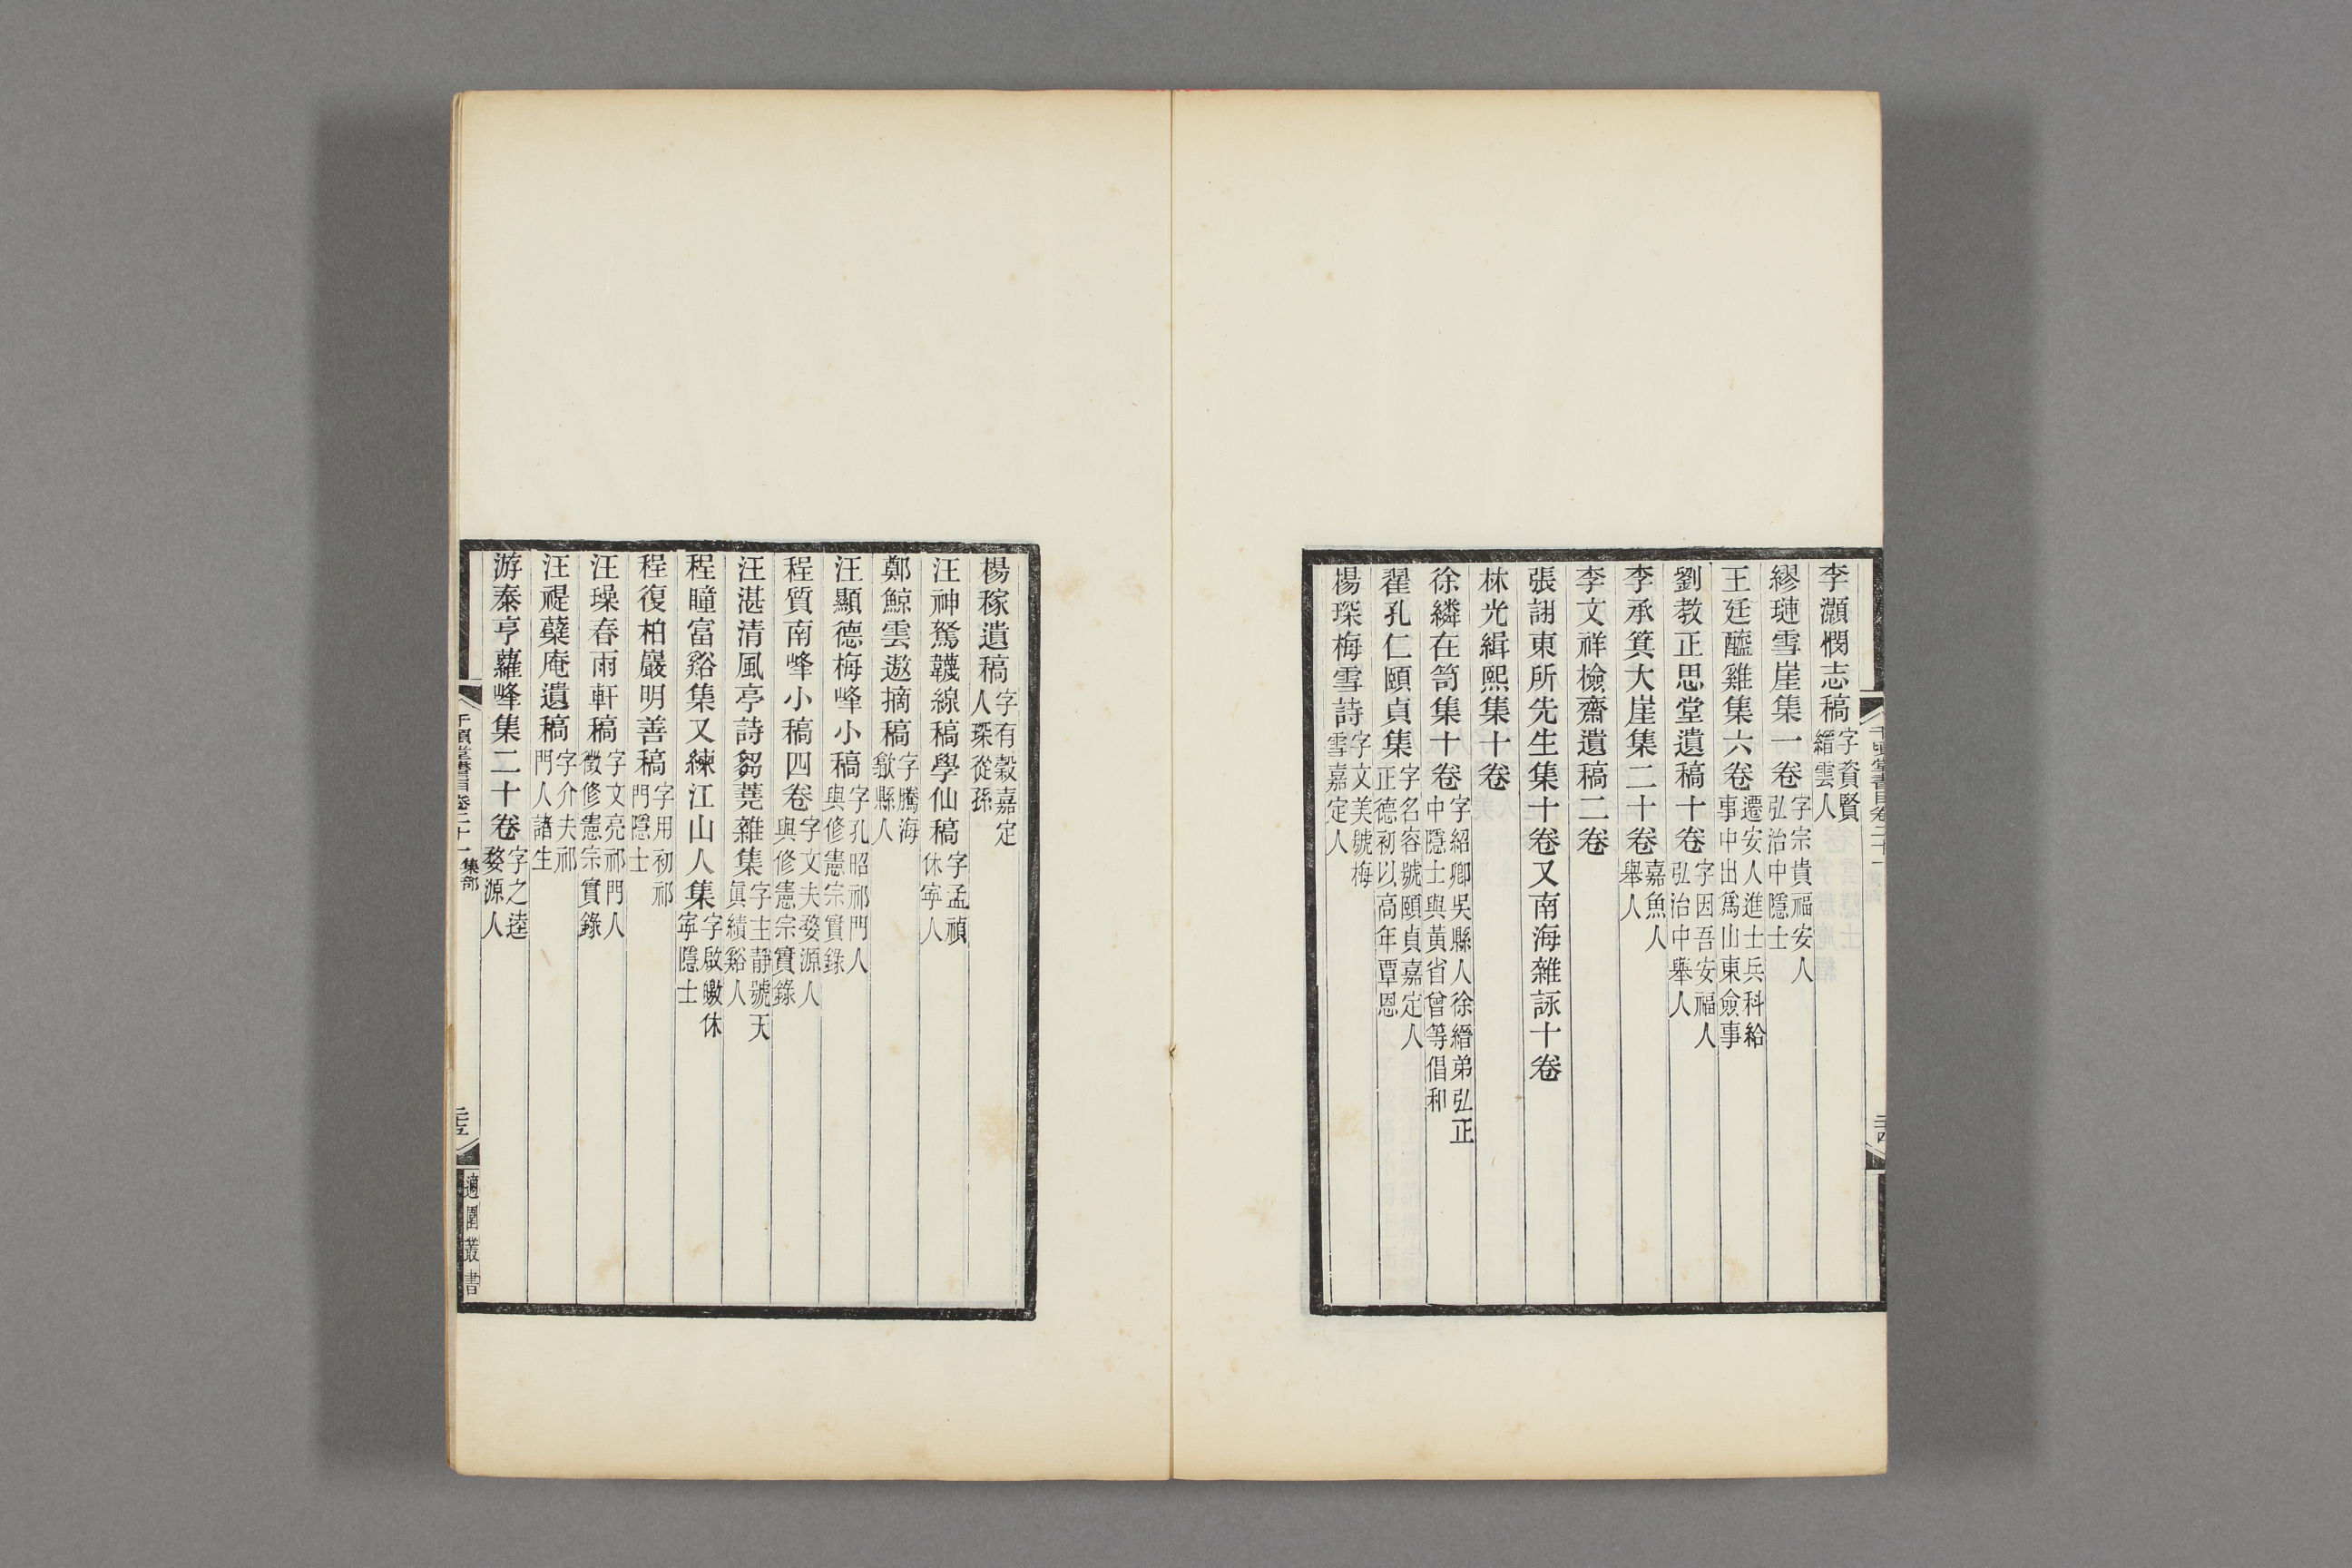 李灝憫志稿字資賢縉雲人
繆璉雪崖集一卷字宗貴福安人弘治中隱士
王廷醯雞集六卷遷安人進士兵科給事中出爲山東僉事
劉教正思堂遺稿十卷字因吾安福人弘治中舉人
李承箕大崖集二十卷嘉魚人舉人
李文祥檢齋遺稿二卷
張詡東所先生集十卷又南海雜詠十卷
林光緝熙集十卷
徐縉在笥集十卷字紹卿吳縣人徐縉弟弘正中隱士與黃省曾等倡和
翟孔仁頤貞集字名容號頤貞嘉定人正德初以高年覃恩
楊琛梅雪詩字文美號梅雪嘉定人
楊稼遺稿字有穀嘉定人琛從孫
汪神駑韈線稿學仙稿字孟禎休寧人
鄭鯨雲遨摘稿字騰海歙縣人
汪顯德梅峰小稿字孔昭祁門人與修憲宗實錄
程質南峰小稿四卷字文夫婺源人與修憲宗實錄
汪湛清風亭詩芻蕘雜集字主靜號天眞績谿人
程瞳富谿集又練江山人集字啟皦休寧隱士
程復柏巖明善稿字用初祁門隱士
汪璪春雨軒稿字文亮祁門人徵修憲宗實錄
汪禔蘗庵遺稿字介夫祁門人諸生
游泰亨蘿峰集二十卷字之逵婺源人
千頃堂書目卷二十一 集部
二十五
適園叢書